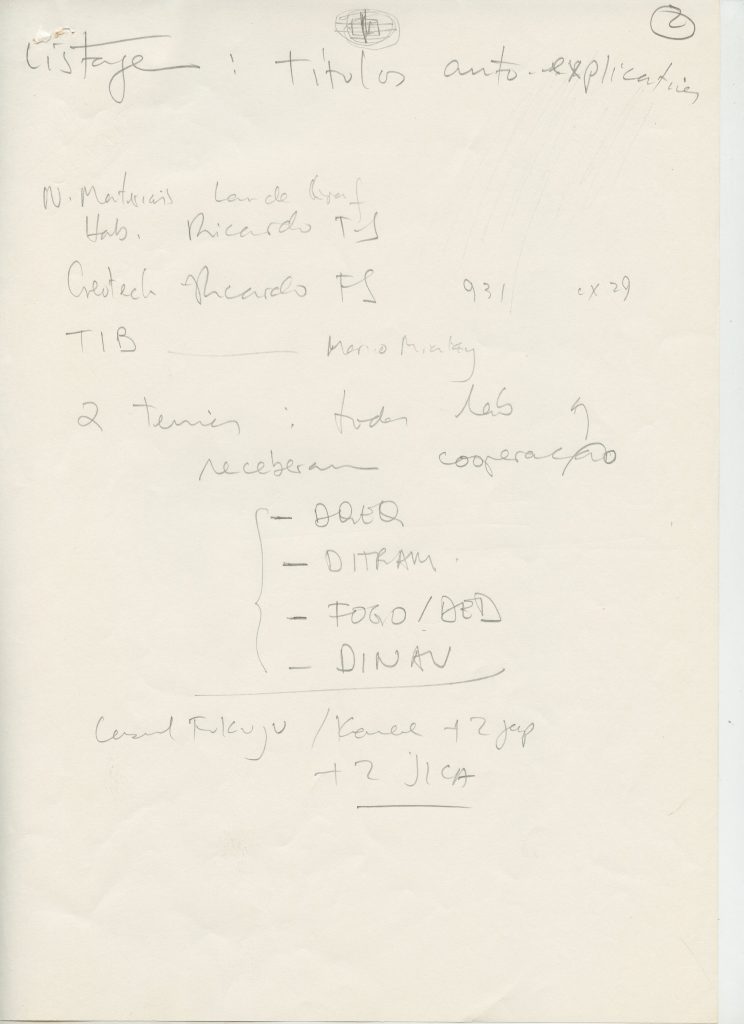 2
Listagem : títulos auto-explicativos
N. Materiais Lande
Hab. Ricardo TS
Geotech Ricardo FS 931 cx 29
TIB Mario
2 : todos lab q
receberam cooperação
- DQEQ
- DITRAM
- FOGO / AED
- DINAV
Fukuju / +2 jap
+2 JICA